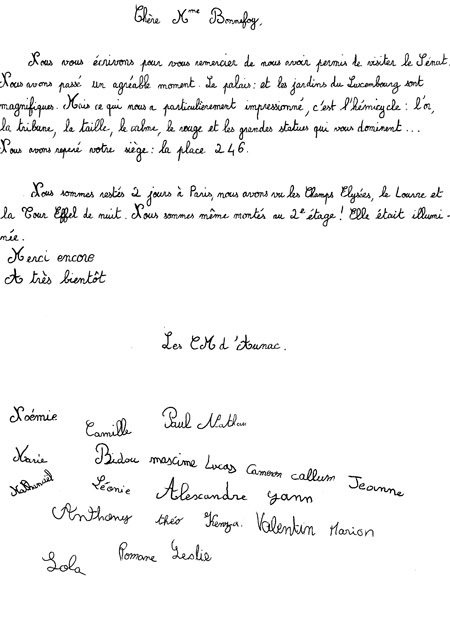 Chère Mme Bonnefoy,
Nous vous écrivons pour vous remercier de nous avoir permis de visiter le Sénat.
Nous avons passé un agréable moment. Le palais : et les jardins du Luxembourg sont
magnifiques. Mais ce qui nous a particulièrement impressionné, c'est l'hémicycle : l'or,
la tribune, la taille, le calme, le rouge et les grandes statues qui vous dominent...
Nous avons repéré votre siège : la place 246.
Nous sommes restés 2 jours à Paris, nous avons vu les Champs Elysées, le Louvre et
la Tour Effel de nuit. Nous sommes même montés au 2e étage ! Elle était illumi-
née.
Merci encore
A très bientôt
Les CM d'Aunac.
Noémie Camille Paul Nathan
Marie Bidou mascime Lucas Cameron callum Jeanne
Nathanaël Léonie Alexandre yann
Anthony théo Kenza Valentin Marion
Lola Romane Leslie